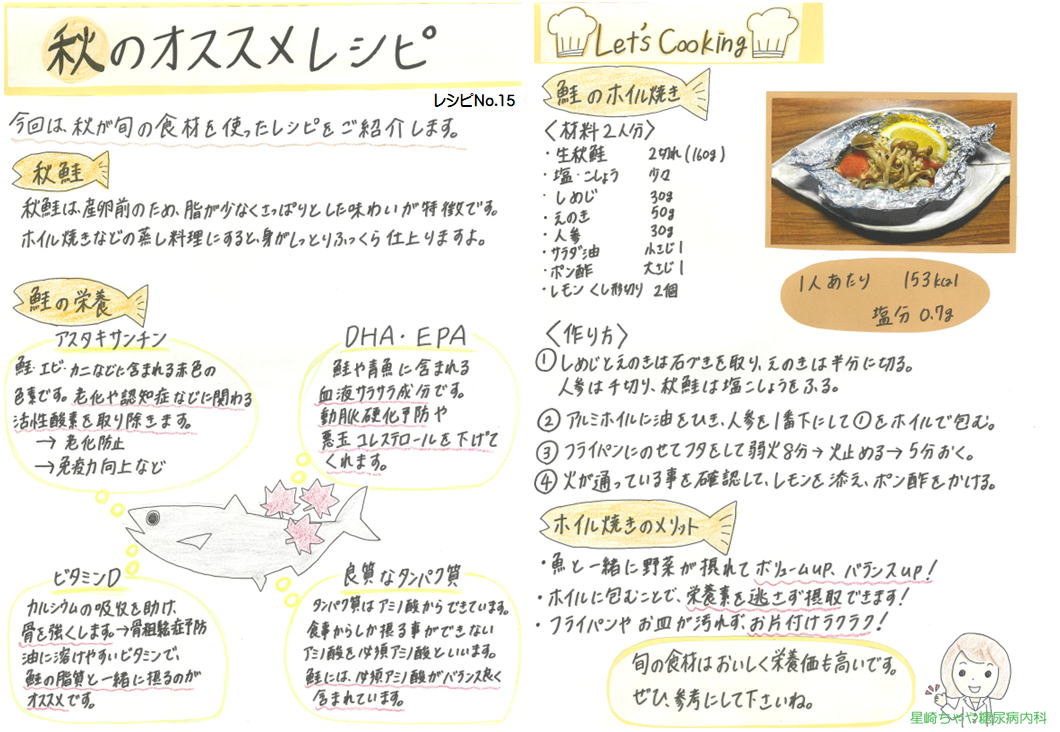 秋のオススメレシピ
レシピNo.15
今回は、秋が旬の食材を使ったレシピをご紹介します。
秋鮭
秋鮭は、産卵前のため、脂が少なくさっぱりとした味わいが特徴です。
ホイル焼きなどの蒸し料理にすると、身がしっとりふっくら仕上りますよ。
鮭の栄養
アスタキサンチン
鮭・エビ・カニなどに含まれる赤色の
色素です。老化や認知症などに関わる
活性酸素を取り除きます。
→ 老化防止
→ 免疫力向上など
DHA・EPA
鮭や青魚に含まれる
血液サラサラ成分です。
動脈硬化予防や
悪玉コレステロールを下げて
くれます。
ビタミンD
カルシウムの吸収を助け、
骨を強くします。→骨粗鬆症予防
油に溶けやすいビタミンで、
鮭の脂質と一緒に摂るのが
オススメです。
良質なタンパク質
タンパク質はアミノ酸からできています。
食事からしか摂る事ができない
アミノ酸を必須アミノ酸といいます。
鮭には、必須アミノ酸がバランス良く
含まれています。
Let's Cooking
鮭のホイル焼き
〈材料2人分〉
・生秋鮭 2切れ(160g)
・塩・こしょう 少々
・しめじ 30g
・えのき 50g
・人参 30g
・サラダ油 小さじ1
・ポン酢 大さじ1
・レモンくし形切り 2個
1人あたり 153kcal
塩分 0.7g
〈作り方〉
① しめじとえのきは石づきを取り、えのきは半分に切る。
人参は千切り、秋鮭は塩こしょうをふる。
② アルミホイルに油をひき、人参を1番下にして①をホイルで包む。
③ フライパンにのせてフタをして弱火8分→火止める→5分おく。
④ 火が通っている事を確認して、レモンを添え、ポン酢をかける。
ホイル焼きのメリット
・魚と一緒に野菜が摂れてボリュームup、バランスup!
・ホイルに包むことで、栄養素を逃さず摂取できます!
・フライパンやお皿が汚れず、お片付けラクラク!
旬の食材はおいしく栄養価も高いです。
ぜひ、参考にして下さいね。
星崎ちゃや糖尿病内科